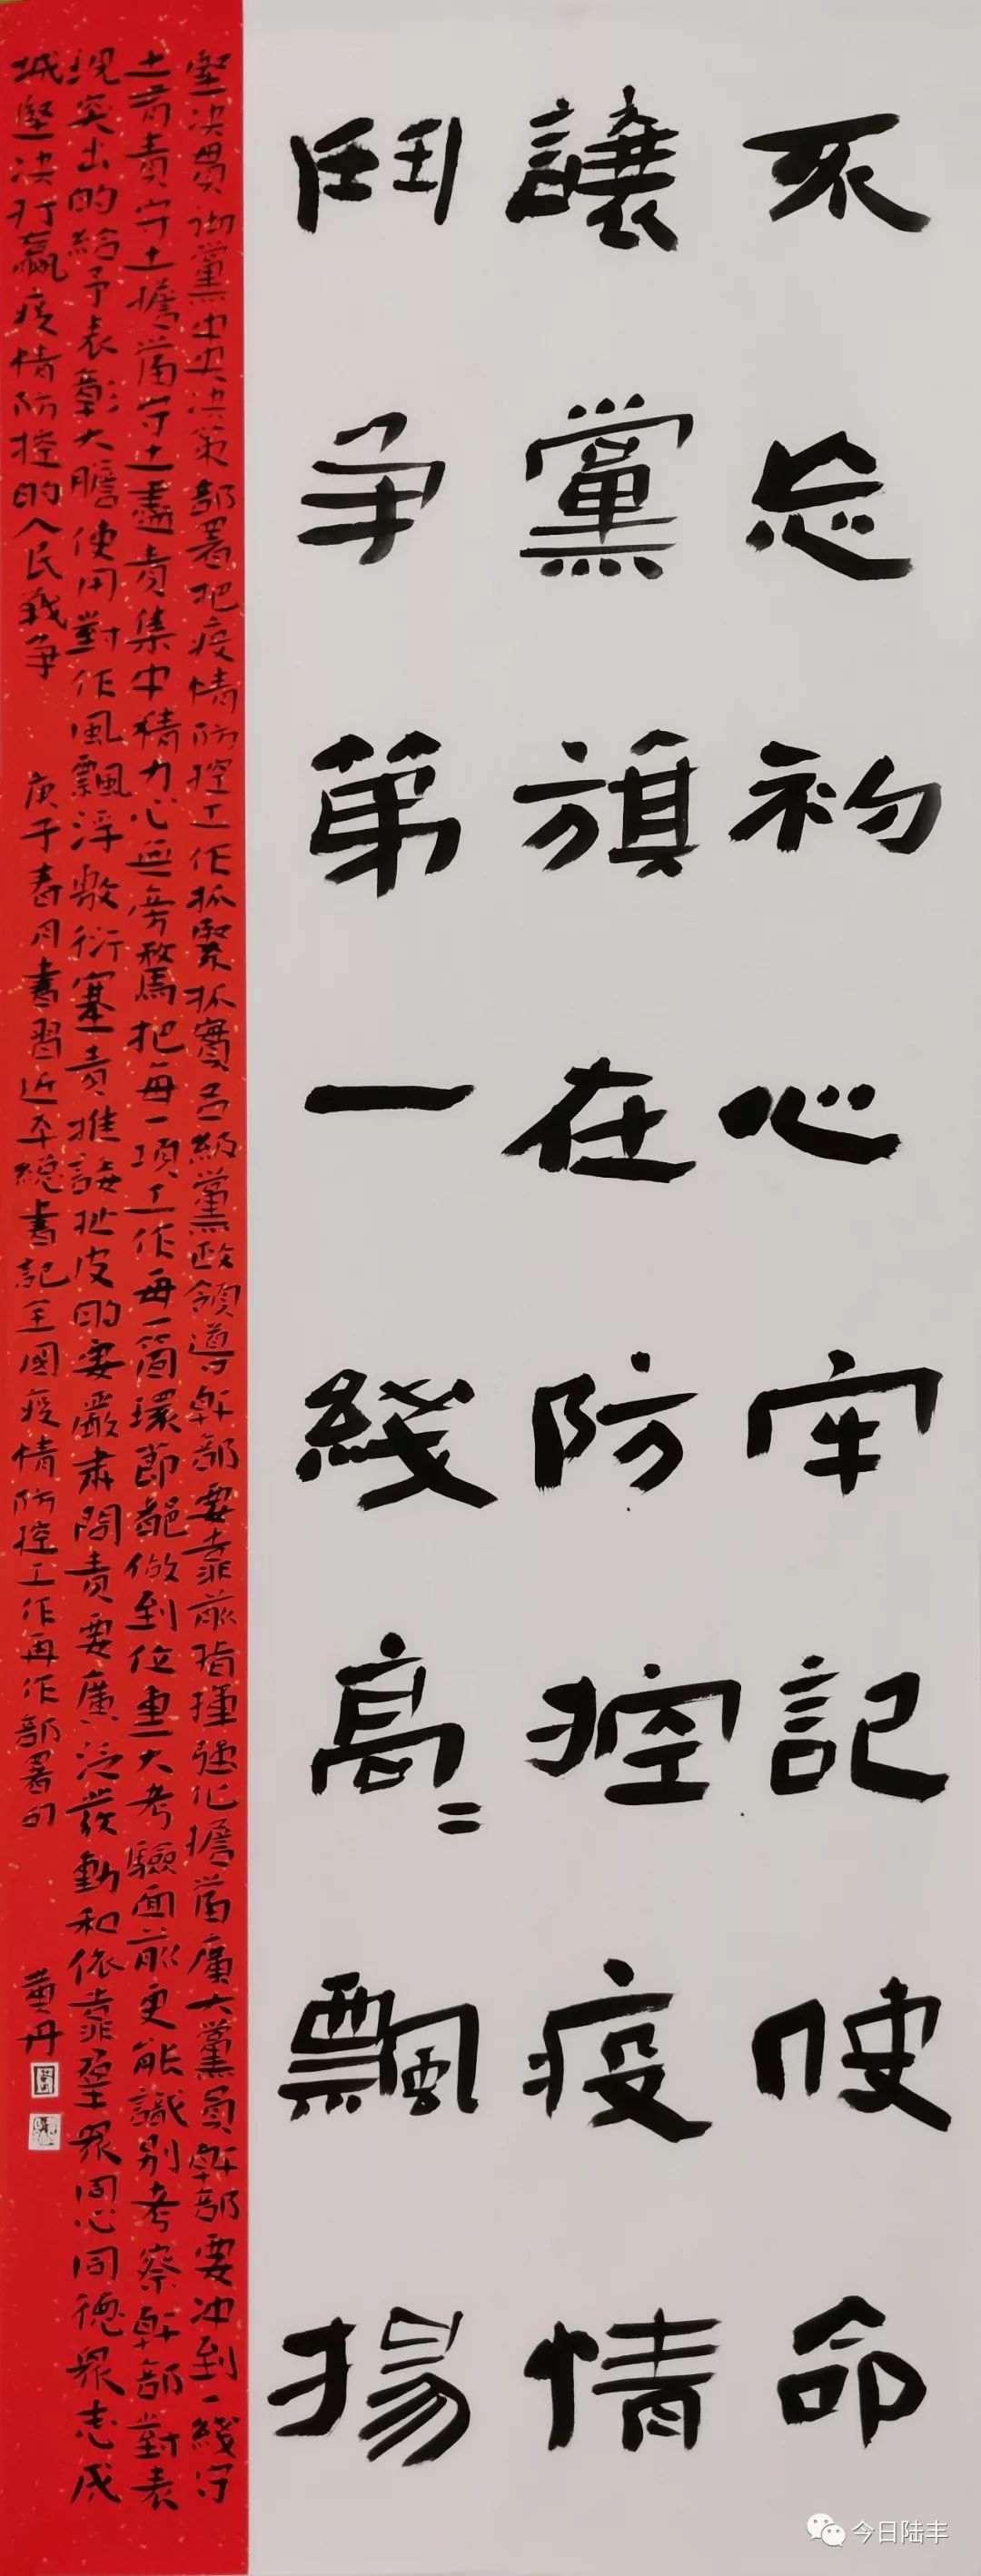 不忘初心牢記使命
讓黨旗在防控疫情
鬥争第一綫高〻飄揚
堅决貫彻黨中央决策部署把疫情防控工作抓緊抓實各級黨政領導幹部要靠前指揮强化擔當廣大黨員幹部要冲到一綫守
土有責守土擔當守土盡責集中精力心無旁騖把每一項工作每一箇環節都做到位重大考驗面前更能識别考察幹部對表
現突出的給予表彰大膽使用對作風飄浮敷衍塞責推諉扯皮的要嚴肃問責要廣泛發動和依靠群衆同心同德衆志成
城堅决打赢疫情防控的人民戰争
庚子春月書習近平總書記全國疫情防控工作再作部署句
黄丹
今日陆丰